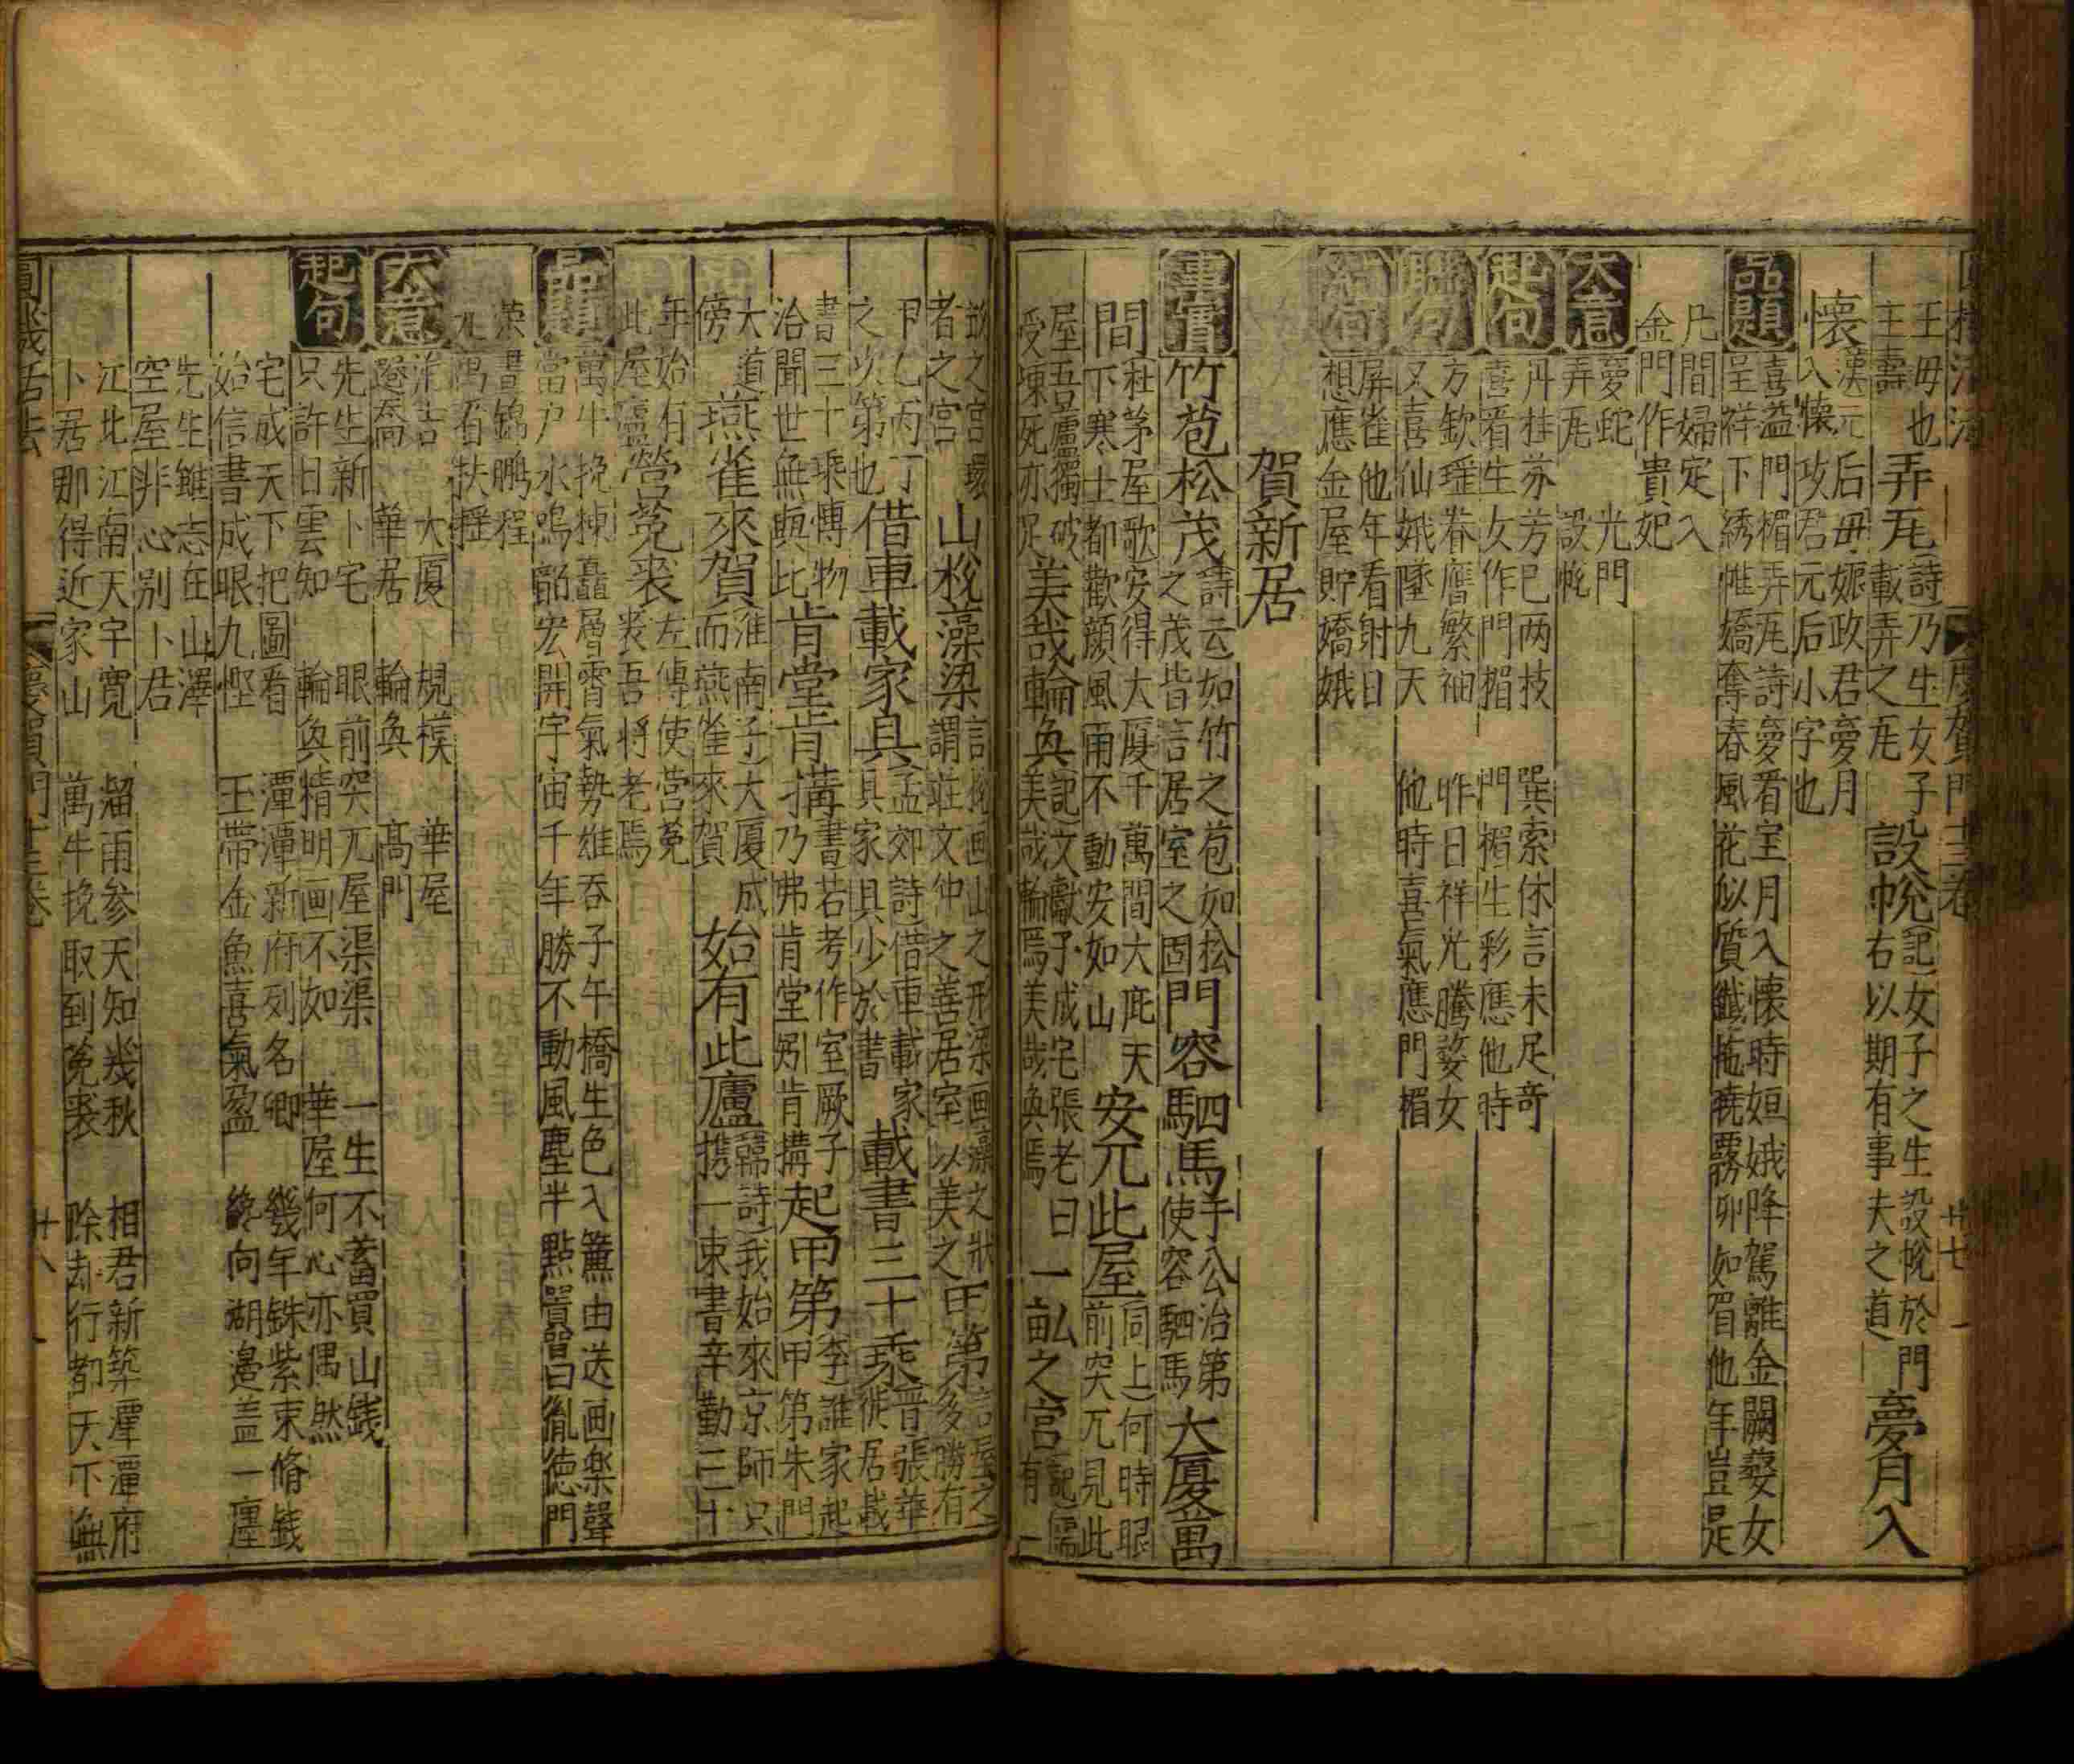 慶賀門十三卷 廿七
王母也 王壽 弄瓦 詩乃生女子 載弄之瓦 設帨 記女子之生設帨於門 右以期有事夫之道 夢月入
懷 漢元后母娠政君夢月 入懷政君元后小字也
品題 喜溢門楣弄瓦詩夢看宝月入懷時姮娥降駕離金闕婺女
呈祥下綉帷嬌奪春風花似質纖拖曉霧卯如眉他年豈是
凡間婦定入
金門作貴妃
大意 夢蛇 光門
弄瓦 設帨
起句 丹桂苏芳已两枝 巽索休言未足竒
喜看生女作門楣 門楣生彩應他時
聯句 方欽瑶眷麿繁袖 昨日祥光騰婺女
又喜仙娥墜九天 他時喜氣應門楣
結句 屏雀他年看射日
想應金屋貯嬌娥
賀新居
事實 竹苞松茂 詩云如竹之苞如松 之茂皆言居室之固 門容駟馬 于公治第 使容駟馬 大厦萬
間 杜茅屋歌安得大厦千萬間大庇天 下寒士都歡顔風雨不動安如山 安兀此屋 同上何時眼 前突兀見此
屋吾廬獨破 受凍死亦足 美哉輪奐 記文獻子成宅張老曰 美哉輪焉美哉奐焉 一畝之宮 記儒 有一
畝之宮環 者之宮 山梲藻梁 言梲画山之形梁画藻之狀 謂莊文仲之善居室以美之 甲第 言屋之 多勝有
甲乙丙丁 之以第也 借車載家具 孟郊詩借車載家 具家具少於書 載書三十乘 晋張華 徙居載
書三十乘博物 洽聞世無與比 肯堂肯搆 書若考作室厥子 乃弗肯堂矧肯搆 起甲第 李誰家起 甲第朱門
大道 傍 燕雀來賀 淮南子大厦成 而燕雀來賀 始有此廬 韓詩我始來京師只 携一束書辛勤三十
年始有 此屋廬 營菟裘 左傳使营菟 裘吾将老焉
品題 萬牛挽棟矗層霄氣勢雄吞子午橋生色入簾由送画楽聲
當户水鳴韶宏開宇宙千年勝不動風塵半點囂曾曰胤徳門
榮晝錦鵬程
萬看扶揺
大意 大厦 規模 華屋
遷喬 華居 輪奐 髙門
起句 先生新卜宅 眼前突兀屋渠渠 一生不蓄買山銭
只許日雲知 輪奐精明画不如 華屋何心亦偶然
宅成天下把圖看 潭潭新府列名卿 幾年銖紫束脩銭
始信書成眼九慳 玉帶金魚喜氣盈 終向湖邉盖一廛
先生雖志在山澤
空屋非心别卜居
江北江南天宇寛 溜雨参天知幾秋 相君新築潭潭府
卜居那得近家山 萬牛挽取到菟裘 除却行都天下無
慶賀門十三卷 廿八